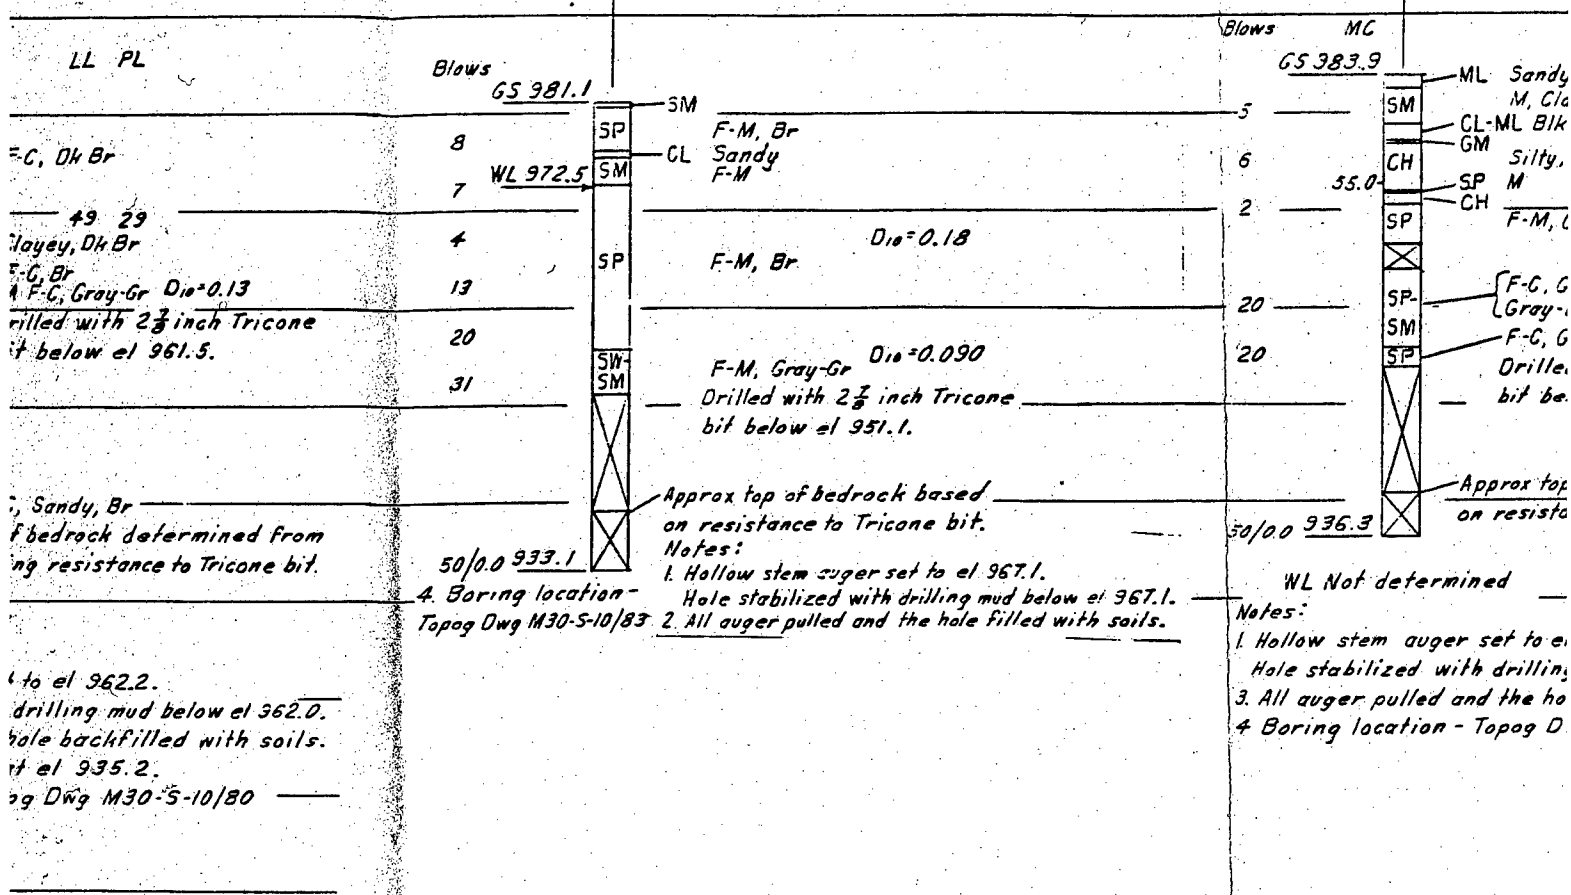 LL PL
F-C, Dk Br
49 29
Clayey, Dk Br
F-C, Br
F-C, Gray-Gr D10=0.13
rilled with 2 7/8 inch Tricone
it below el 961.5.
, Sandy, Br
f bedrock determined from
ng resistance to Tricone bit.
to el 962.2.
drilling mud below el 962.0.
hole backfilled with soils.
at el 935.2.
og Dwg M30-S-10/80
Blows
GS 981.1
SM
8
SP
F-M, Br
CL Sandy
WL 972.5
SM
F-M
7
4
D10=0.18
SP
F-M, Br
13
20
SW-
SM
F-M, Gray-Gr D10=0.090
31
Drilled with 2 7/8 inch Tricone
bit below el 951.1.
Approx top of bedrock based
on resistance to Tricone bit.
50/0.0 933.1
Notes:
1. Hollow stem auger set to el 967.1.
Hole stabilized with drilling mud below el 967.1.
2. All auger pulled and the hole filled with soils.
4. Boring location-
Topog Dwg M30-S-10/83
Blows MC
GS 983.9
ML Sandy
5
SM
M, Cla
CL-ML Blk
GM
6
CH
Silty,
55.0
SP M
CH
2
SP
F-M,
20
SP-
SM
F-C, G
Gray-
20
SP
F-C, G
Drille
bit be
Approx top
on resista
50/0.0 936.3
WL Not determined
Notes:
1. Hollow stem auger set to e
Hole stabilized with drilling
3. All auger pulled and the ho
4 Boring location - Topog D